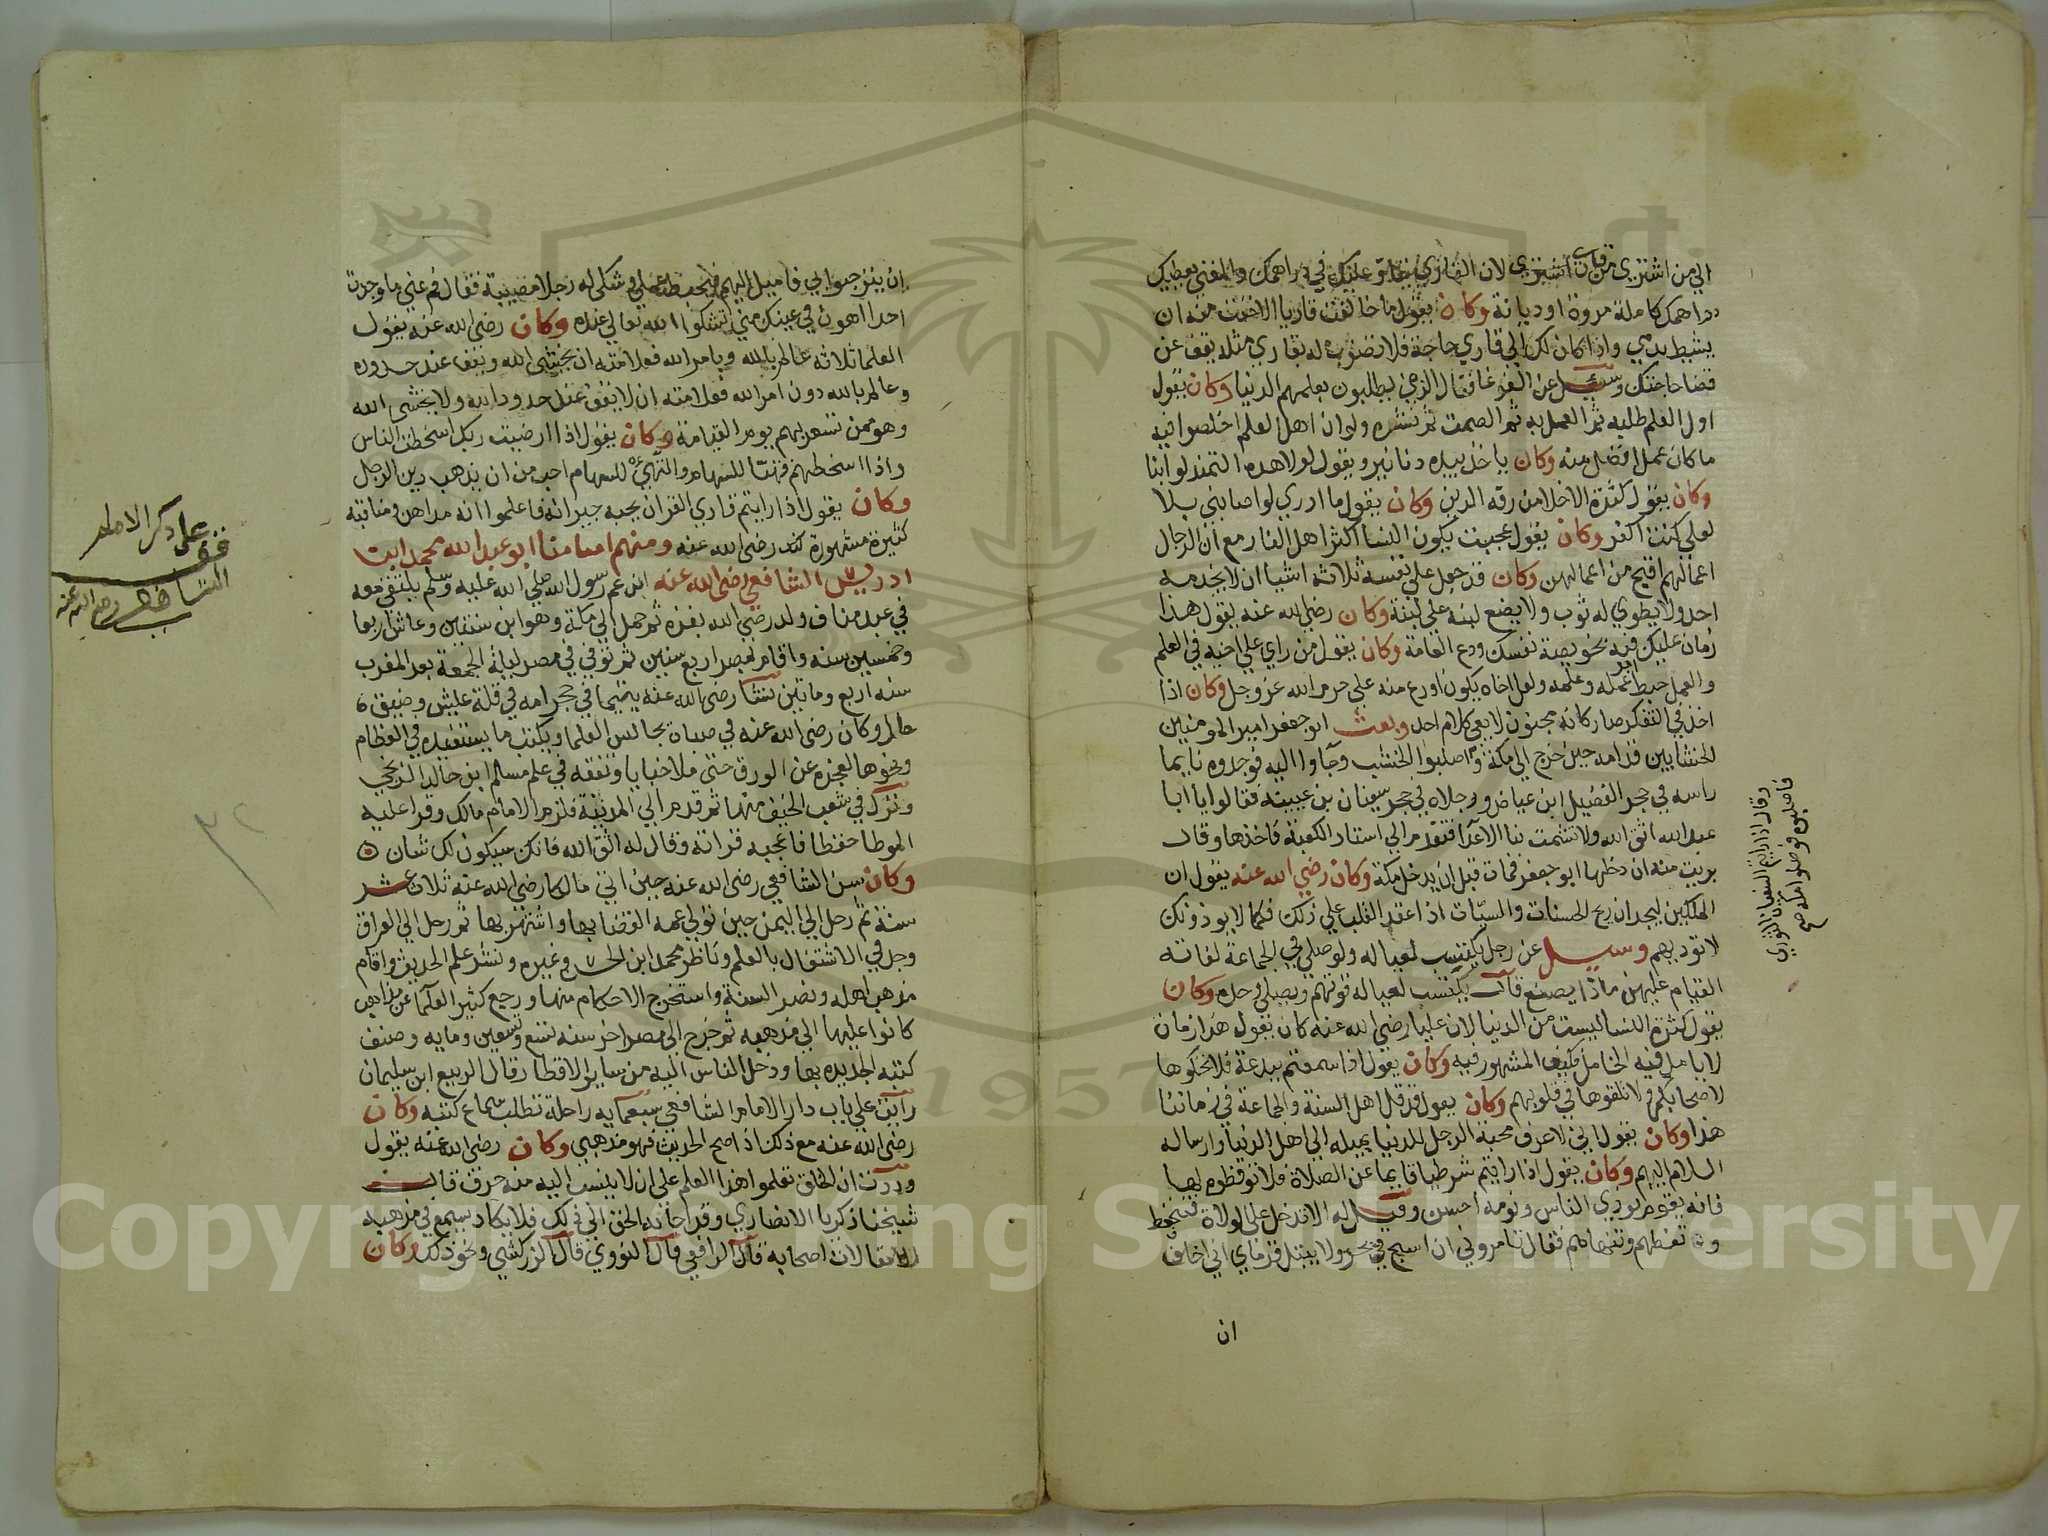 الي من اشتري من قاري لان القاري يتاول عليك في دراهمك والمغني يعطيك
دراهمك كاملة مروة او ديانة وكان يقول ما خالفت قاريا الا خفت منه ان
يشيط بدمي واذا كان لك الي قاري حاجة فلا تضرب له بقاري مثله يقف عن
قضا حاجتك وسئل عن الغوغا فقال الذين يطلبون بعلمهم الدنيا وكان يقول
اول العلم طلبه ثم العمل به ثم الصمت ثم نشره ولو ان اهل العلم اخلصوا فيه
ما كان عمل افضل منه وكان ياخذ بيده دنانير ويقول لولا هذه لتمندلوا بنا
وكان يقول كثرة الاخلا من رقة الدين وكان يقول ما ادري لو اصابني بلا
لعلي كنت اكفر وكان يقول عجبت يكون النسا اكثر اهل النار مع ان الرجال
اعمالهم اقبح من اعمالهن وكان قد جعل علي نفسه ثلاثة اشيا ان لا يخدمه
احد ولا يطوي له ثوب ولا يضع لبنة علي لبنة وكان رضي الله عنه يقول هذا
زمان عليك فيه بخويصة نفسك ودع العامة وكان يقول من راي علي اخيه في العلم
والعمل حبط اجر عمله وعلمه ولعل اخاه يكون اورع منه علي حرم الله عز وجل وكان اذا
اخذ في التفكر صار كانه مجنون لا يعي كلام احد وبعث ابو جعفر امير المومنين
الخشابين قدامه حين خرج الي مكة واصلبوا الخشب وجاوا اليه فوجدوه نايما
راسه في حجر الفضيل ابن عياض ورجلاه في حجر سفيان بن عيينة فقالوا يا ابا
عبد الله اتق الله ولا تشمت بنا الاعدا فتقدم الي استار الكعبة فاخذها وقال
بريت منه ان دخلها ابو جعفر فمات قبل ان يدخل مكة وكان رضي الله عنه يقول ان
الملكين ليجدان ريح الحسنات والسيات اذا عقد القلب علي ذلك فكما لا يوذونك
لا توذيهم وسيل عن رجل يكتسب لعياله ولو صلي في الجماعة لفاته
القيام عليهن ماذا يصنع قال يكتسب لعياله قوتهم ويصلي وحده وكان
يقول كثرة النسا ليست من الدنيا لان عليا رضي الله عنه كان يقول هذا زمان
لا يامن فيه الخامل فكيف المشهور فيه وكان يقول اذا سمعتم ببدعة فلا تحكوها
لاصحابكم ولا تلقوها في قلوبهم وكان يقول قد قل اهل السنة والجماعة في زماننا
هذا وكان يقول اني لاعرف محبة الرجل للدنيا بميله الي اهل الدنيا وارساله
السلام اليهم وكان يقول اذا رايتم شرطيا قايما عن الصلاة فلا توقظوه لها
فانه يقوم يوذي الناس ونومه احسن وقيل له الا تدخل علي الولاة فتتحفظ
وتعظهم وتنهاهم فقال تامروني ان اسبح في بحر ولا يبتل قدماي اني اخاف
ان
وقال اذا رايتم السفيان الثوري
فاصلبوه فوصلوا مكة صح
ان يترحبوا بي فاميل اليهم فيحبط عملي وشكي له رجل مصيبة فقال قم عني ما وجدت
احدا اهون في عينك مني تشكوا الله تعالي عنده وكان رضي الله عنه يقول
العلما ثلاثة عالم بالله وبامر الله فعلامته ان يخشي الله ويقف عند حدوده
وعالم بالله دون امر الله فعلامته ان لا يقف عند حدود الله ولا يخشي الله
وهو ممن تسعر بهم يوم القيامة وكان يقول اذا ارضيت ربك اسخطت الناس
واذا اسخطتهم فتهيا للسهام والتهيئ للسهام احب من ان يذهب دين الرجل
وكان يقول اذا رايتم قاري القران يحبه جيرانه فاعلموا انه مداهن ومناقبه
كثيرة مشهورة رضي الله عنه ومنهم امامنا ابو عبد الله محمد ابن
ادريس الشافعي رضي الله عنه ابن عم رسول الله صلي الله عليه وسلم يلتقي معه
في عبد مناف ولد رضي الله بغزة ثم حمل الي مكة وهو ابن سنتين وعاش اربعا
وخمسين سنه واقام بمصر اربع سنين ثم توفي في مصر ليلة الجمعة بعد المغرب
سنه اربع وماتين نشا رضي الله عنه يتيما في حجر امه في قلة عيش وضيق
حال وكان رضي الله عنه في صباه يجالس العلما ويكتب ما يستفيده في العظام
ونحوها لعجزه عن الورق حتي ملا خبايا وتفقه في علم مسلم ابن خالد الزنجي
ونزل في شعب الخيف منها ثم قدم الي المدينة فلزم الامام مالك وقرا عليه
الموطا حفظا فاعجبه قراته وقال له اتق الله فانك سيكون لك شان
وكان سن الشافعي رضي الله عنه حين اتي مالكا رضي الله عنه ثلاث عشر
سنة ثم رحل الي اليمن حين تولي عمه القضا بها واشتهر بها ثم رحل الي العراق
وجل في الاشتغال بالعلم وناظر محمد ابن الحسن وغيره ونشر علم الحديث واقام
مذهب اهله ونصر السنة واستخرج الاحكام منها ورجع كثير العلما عن مذاهب
كانوا عليها الي مذهبه ثم خرج الي مصر اخر سنه تسع وتسعين ومايه وصنف
كتبه الجديده بها ودخل الناس اليه من ساير الاقطار قال الربيع ابن سليمان
رايت علي باب دار الامام الشافعي سبعمايه راحلة تطلب سماع كتبه وكان
رضي الله عنه مع ذلك اذا صح الحديث فهو مذهبي وكان رضي الله عنه يقول
وددت ان الخلق تعلموا هذا العلم علي ان لا ينسب اليه منه حرف قال
شيخنا زكريا الانصاري وقد اجابه الحق الي ذلك فلا يكاد يسمع في مذهبه
الا مقالات اصحابه قال الرافعي قال النووي قال الزركشي ونحو ذلك وكان
علي ذكر الامام
الشافعي رضي الله عنه
٣٢
Copyright © King Saud University
1957